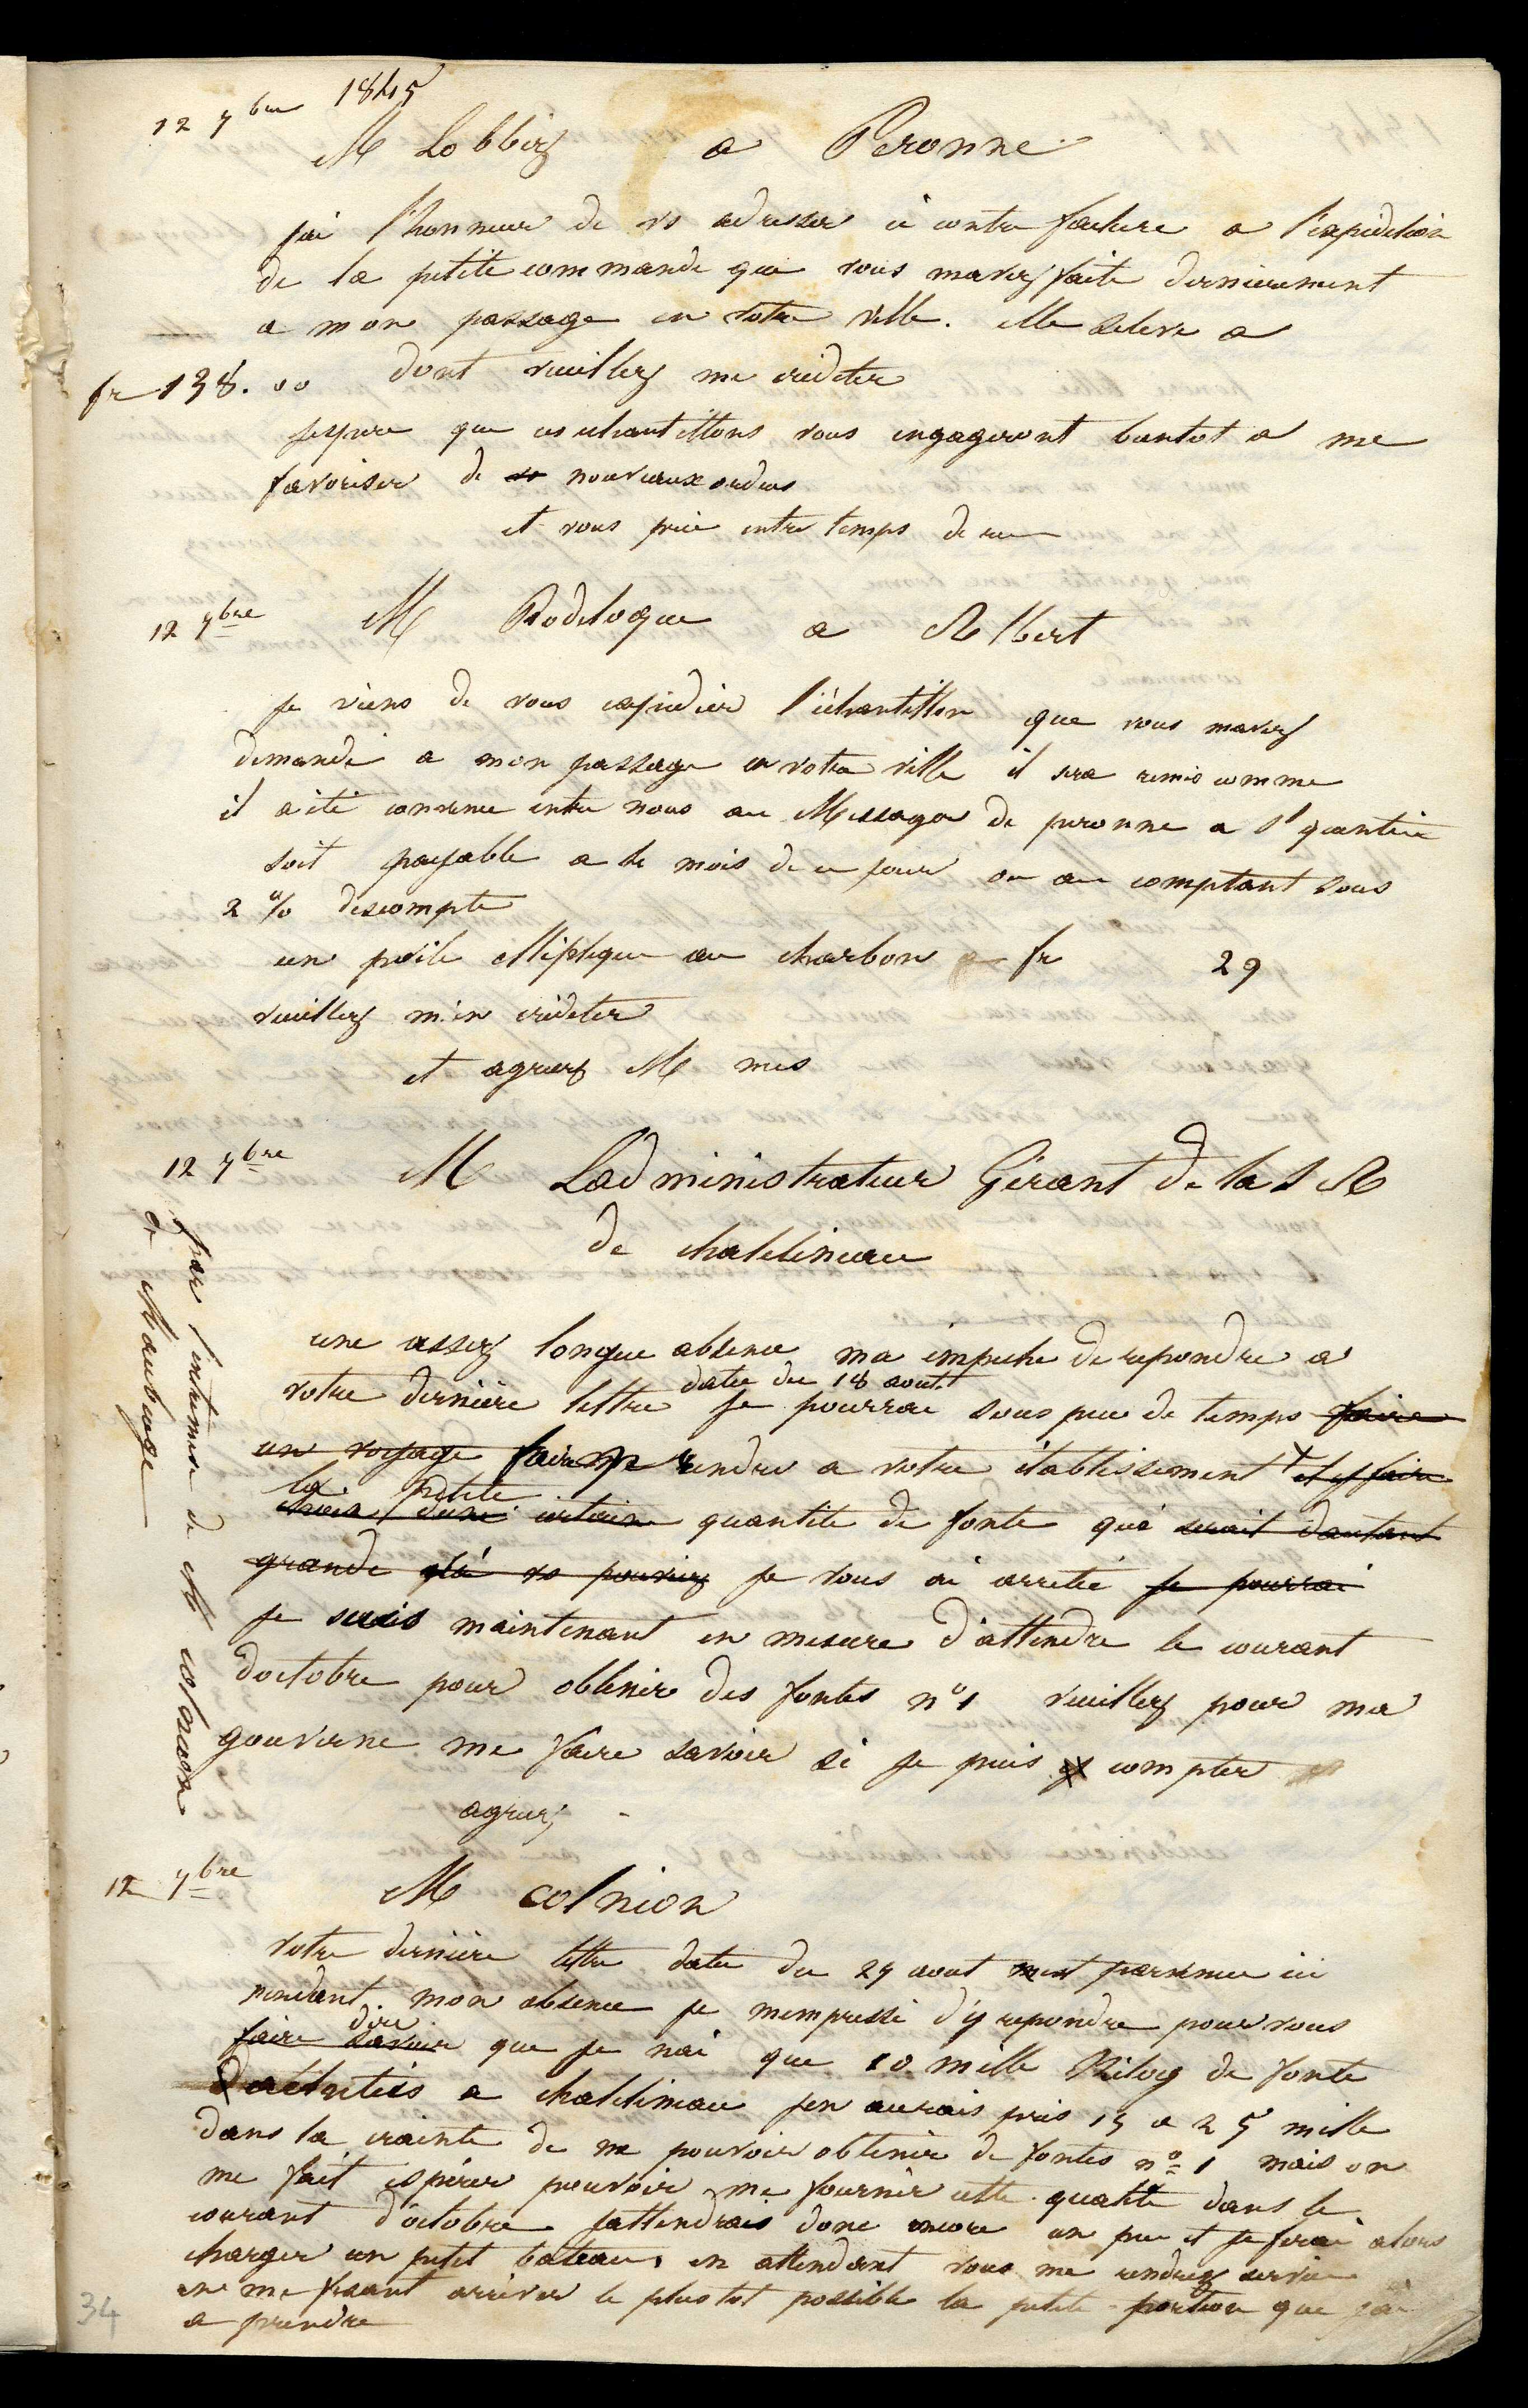 12 7bre 1845
M Lobbiez a Peronne
jai l'honneur de vs adresser ci contre facture a l'expedition
de la petite commande que vous mavez faite dernierement
a mon passage en votre ville. elle seleve a
fr 138. 00 dont veuillez me créditer
jespere que ces echantillons vous engageront bientot a me
favoriser de nouveaux ordres
et vous prie entre temps de me
12 7bre M Rodeloque a Albert
je viens de vous expedier l'échantillon que vous mavez
demandé a mon passage en votre ville il sera remis comme
il a été convenue entre nous au Messager de peronne a St quentin
soit payable a de mois de ce jour ou au comptant sous
2 % descompte
un poële elliptique au charbon fr 29
veuillez m'en créditer
et agreez M mes
12 7bre M Ladministrateur Gérant de la S A
de chatelineau
par l'entremise de M colnion
a Maubeuge
une assez longue absence ma empeche de repondre a
votre dernière lettre datee du 18 aout je pourrai sous peu de temps faire
un voyage faire prendre a votre établissement et y faire
la petite
choix d'une certaine quantité de fonte que serait dautant
grande vs pouviez je vous ai arrêtée je pourrai
je suis maintenant en mesure d'attendre le courant
d'octobre pour obtenir des fontes n° 1 veuillez pour ma
gouverne me faire savoir si je puis y compter
agreez
12 7bre M colnion
votre dernière lettre datee du 27 aout mest parvenue ici
pendant mon absence je mempresse d'y repondre pour vous
dire
faire savoir que je nai que 10 mille Kilog de fonte
dachetées a chatelineau jen aurais pris 15 a 25 mille
dans la crainte de ne pouvoir obtenir de fontes n° 1 mais on
me fait espérer pouvoir me fournir cette qualité dans le
courant d'octobre jattendrais donc encore un peu et je ferai alors
charger un petit bateau, en attendant vous me rendrez service
en me fesant arriver le plustot possible la petite portion que jai
a prendre
34